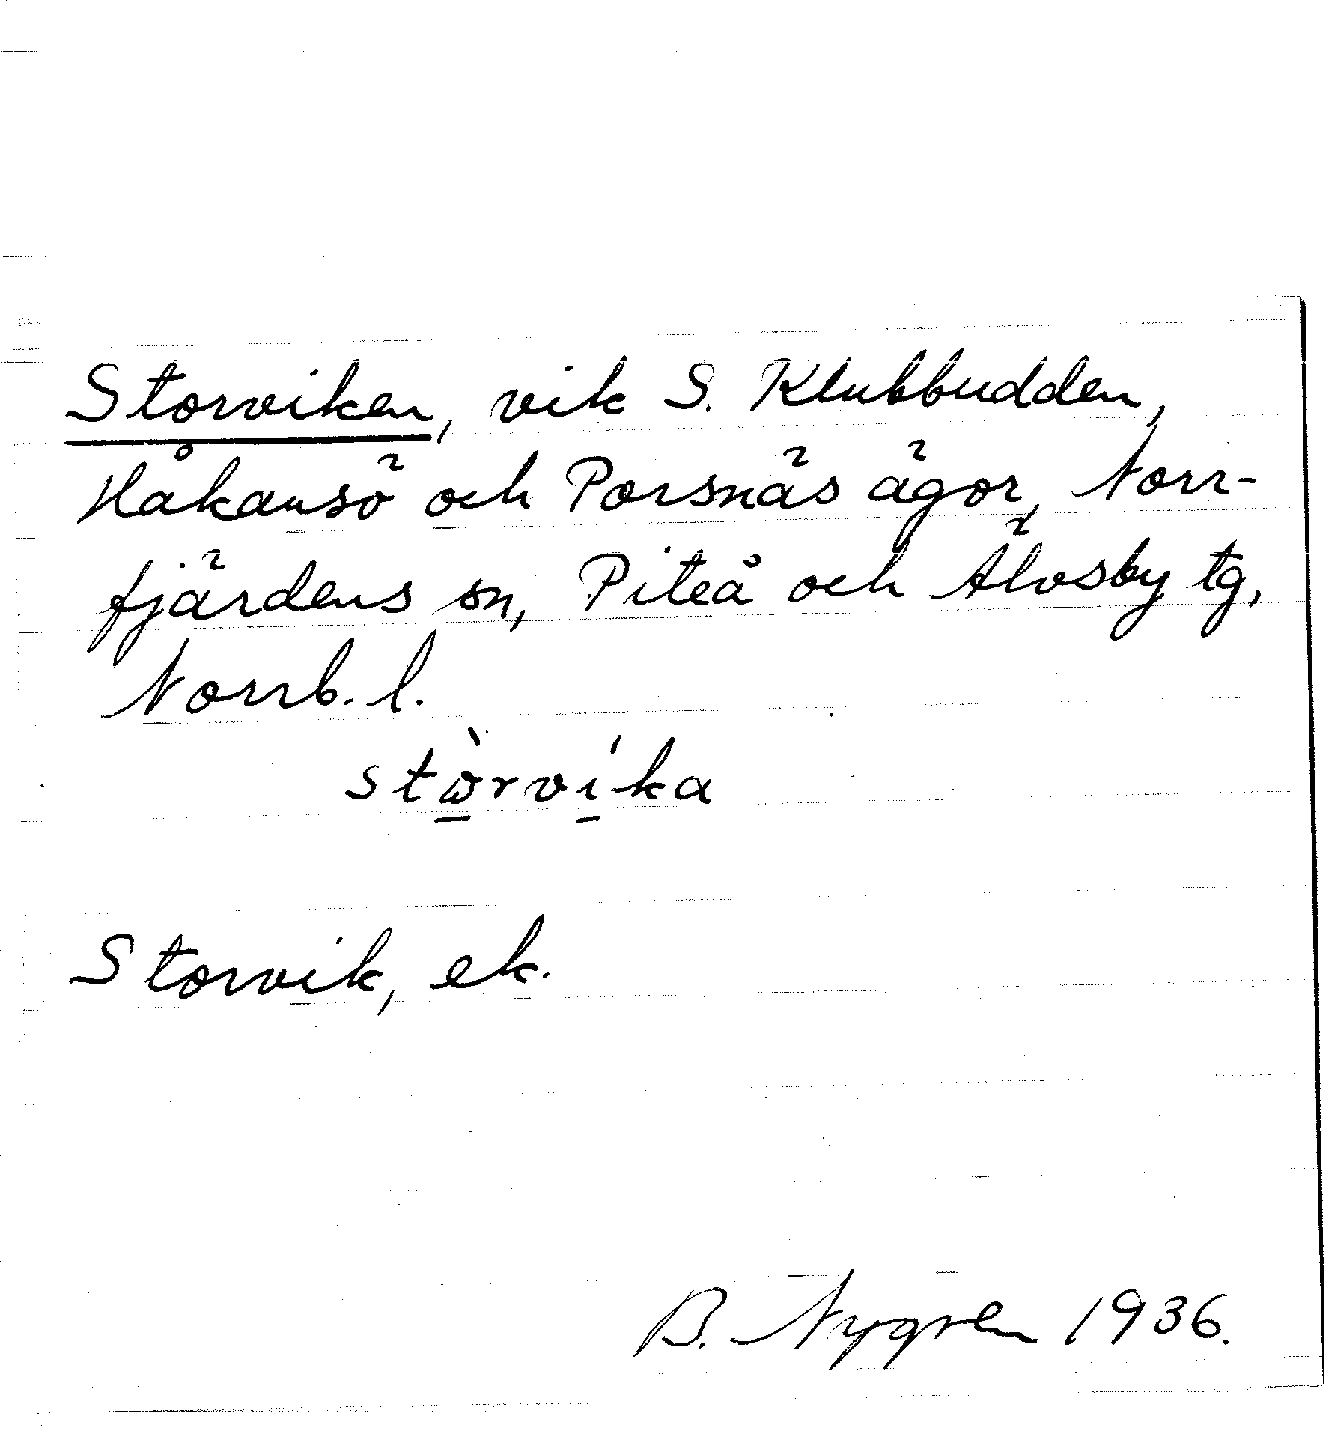 Storviken, vik S. Klubbudden,
Håkansö och Porsnäs ägor, Norr-
fjärdens sn, Piteå och Älvsby tg,
Norrb. l.
stòrvíka
Storvik, ek.
B. Nygren 1936.